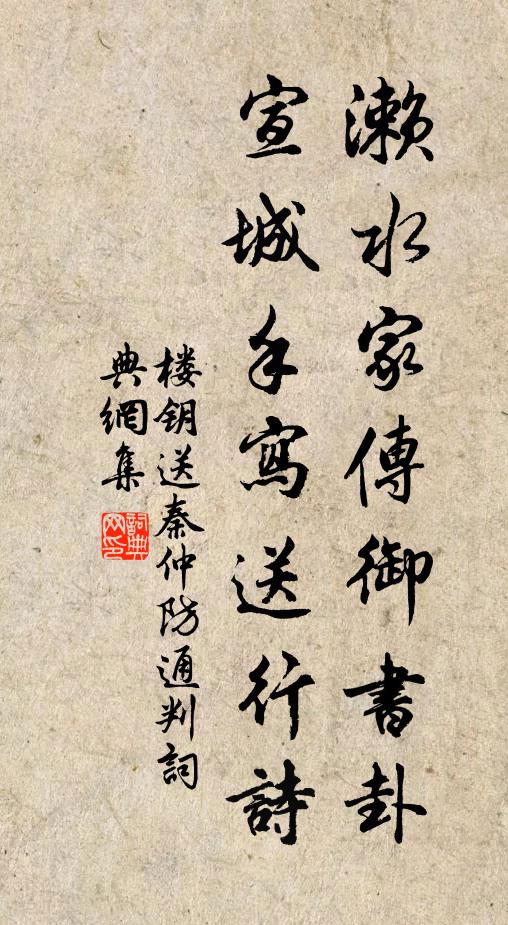 濑水家傳御書卦
宣城手寫送行詩
楼钥送秦仲防通判詞
典網集
詞典網印